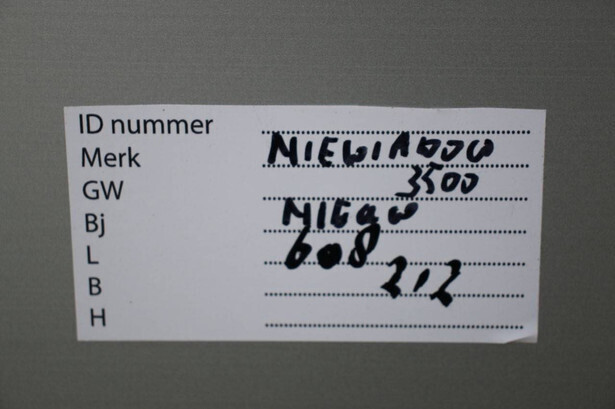 ID nummer
Merk NIEWIADOW
GW 3500
Bj NIEUW
L 608
B 2,2
H